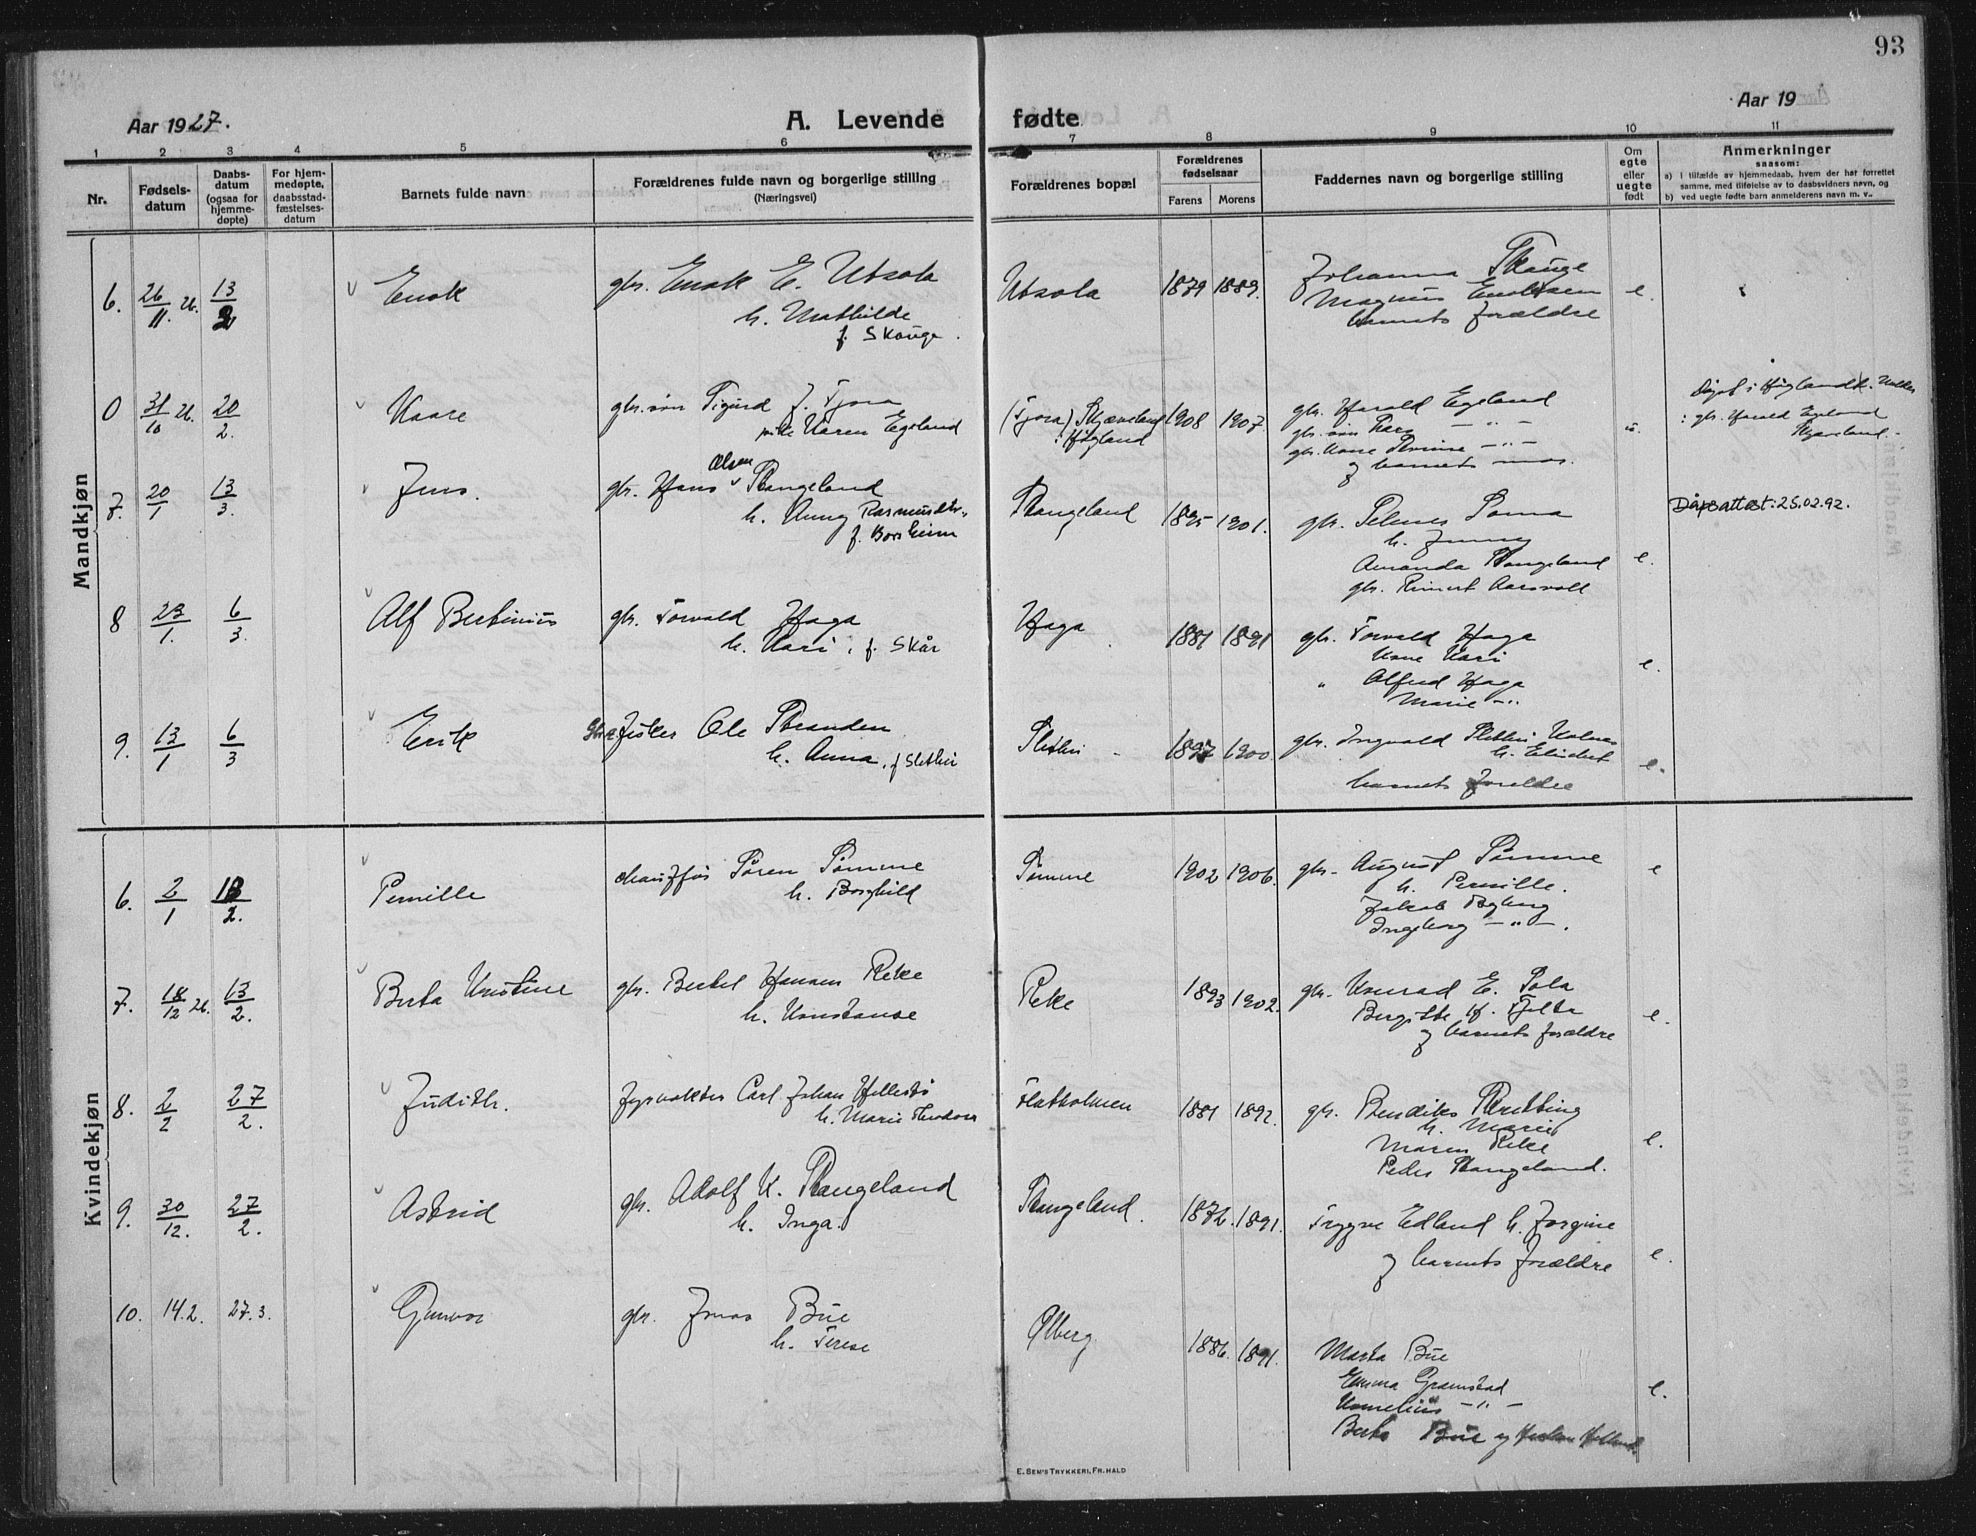 93
Aar 1927.
A. Levende fødte
Aar 19
1 2 3 4 5 6 7 8 9 10 11
Nr.
Fødsels-
datum
Daabs-
datum
(ogsaa for
hjemme-
døpte)
For hjem-
medøpte,
daabsstad-
fæstelses-
datum
Barnets fulde navn
Forældrenes fulde navn og borgerlige stilling
(Næringsvei)
Forældrenes bopæl
Forældrenes
fødselsaar
Farens Morens
Faddernes navn og borgerlige stilling
Om
egte
eller
uegte
født
Anmerkninger
saasom:
a) i tilfælde av hjemmedaab, hvem der har forrettet
samme, med tilføielse av to daabsvidners navn, og
b) ved uegte fødte barn anmelderens navn m. v..
Mandkjøn
6. 26/11. 26. 13/2 Enok gbr. Enok E. Utsola Utsola 1879 1889. Johanna Skauge e.
h. Mathilde Magnus Enoksen
f. Skauge. barnets forældre
0 31/10 26. 20/2. Kaare gbr.søn Sigurd J. Tjora (Tjora) Skjæveland 1908 1907. gbr. Harald Egeland u.
pike Karen Egeland i Høgland gbr. søn Lars — " —
og barnets mor.
: gbr. Harald Egeland
Skjæveland.
7. 20/1 13/3. Jens. gbr. Hans Olsen Stangeland Stangeland 1895 1901. gbr. Soma Dåpsattest: 25.02.92.
h. Anny Rasmusdtr. h. Jenny
f. Borsheim Amanda Stangeland e.
gbr. Reinert Aarsvold
8 23/1. 6/3. Alf Bertinius gbr. Torvald Haga Haga 1881 1891 gbr. Torvald Haga
h. Kari, f. Skår Kone Kari e.
" Alfred Haga
Marie — " —
9. 13/1 6/3 Erik fisker Ole Stranden Sletlei 1897 1900. gbr. Ingvald Sletlei Kolnes
h. Anna, f Sletlei h. Elisabet e.
barnets forældre
Kvindekjøn
6. 2/1 13/2. Pernille chauffør Søren Sømme Sømme 1902 1906. gbr. August Sømme e
h. Borghild h. Pernille.
Jakob Rygberg
Ingeborg — " — .
7. 18/12 26. 13/2. Berta Kristine gbr. Bertel Hansen Reke Reke 1893 1902. gbr. Konrad E. Sola
h. Konstanse Bergitte H. Tjelta e.
og barnets forældre
8. 2/2 27/2. Judith. fyrvokter Carl Johan Hellestø Flatholmen 1881 1892. gbr. Bendiks Skretting
h. Marie Theodora h. Marie
Maren Reke e.
Peder Stangeland.
9. 30/12. 27/2. Astrid gbr. Adolf K. Stangeland Stangeland. 1872. 1891. Trygve Edland h. Jorgine
h. Inga. og barnets forældre e.
10. 14.2. 27.3. Gunvor gbr. Jonas Bue Ølberg 1886. 1891. Marta Bue
h. Terese Emma Gramstad e.
Kornelius — " —
Berta Bue og
E. Sem's Trykkeri, Fr.hald